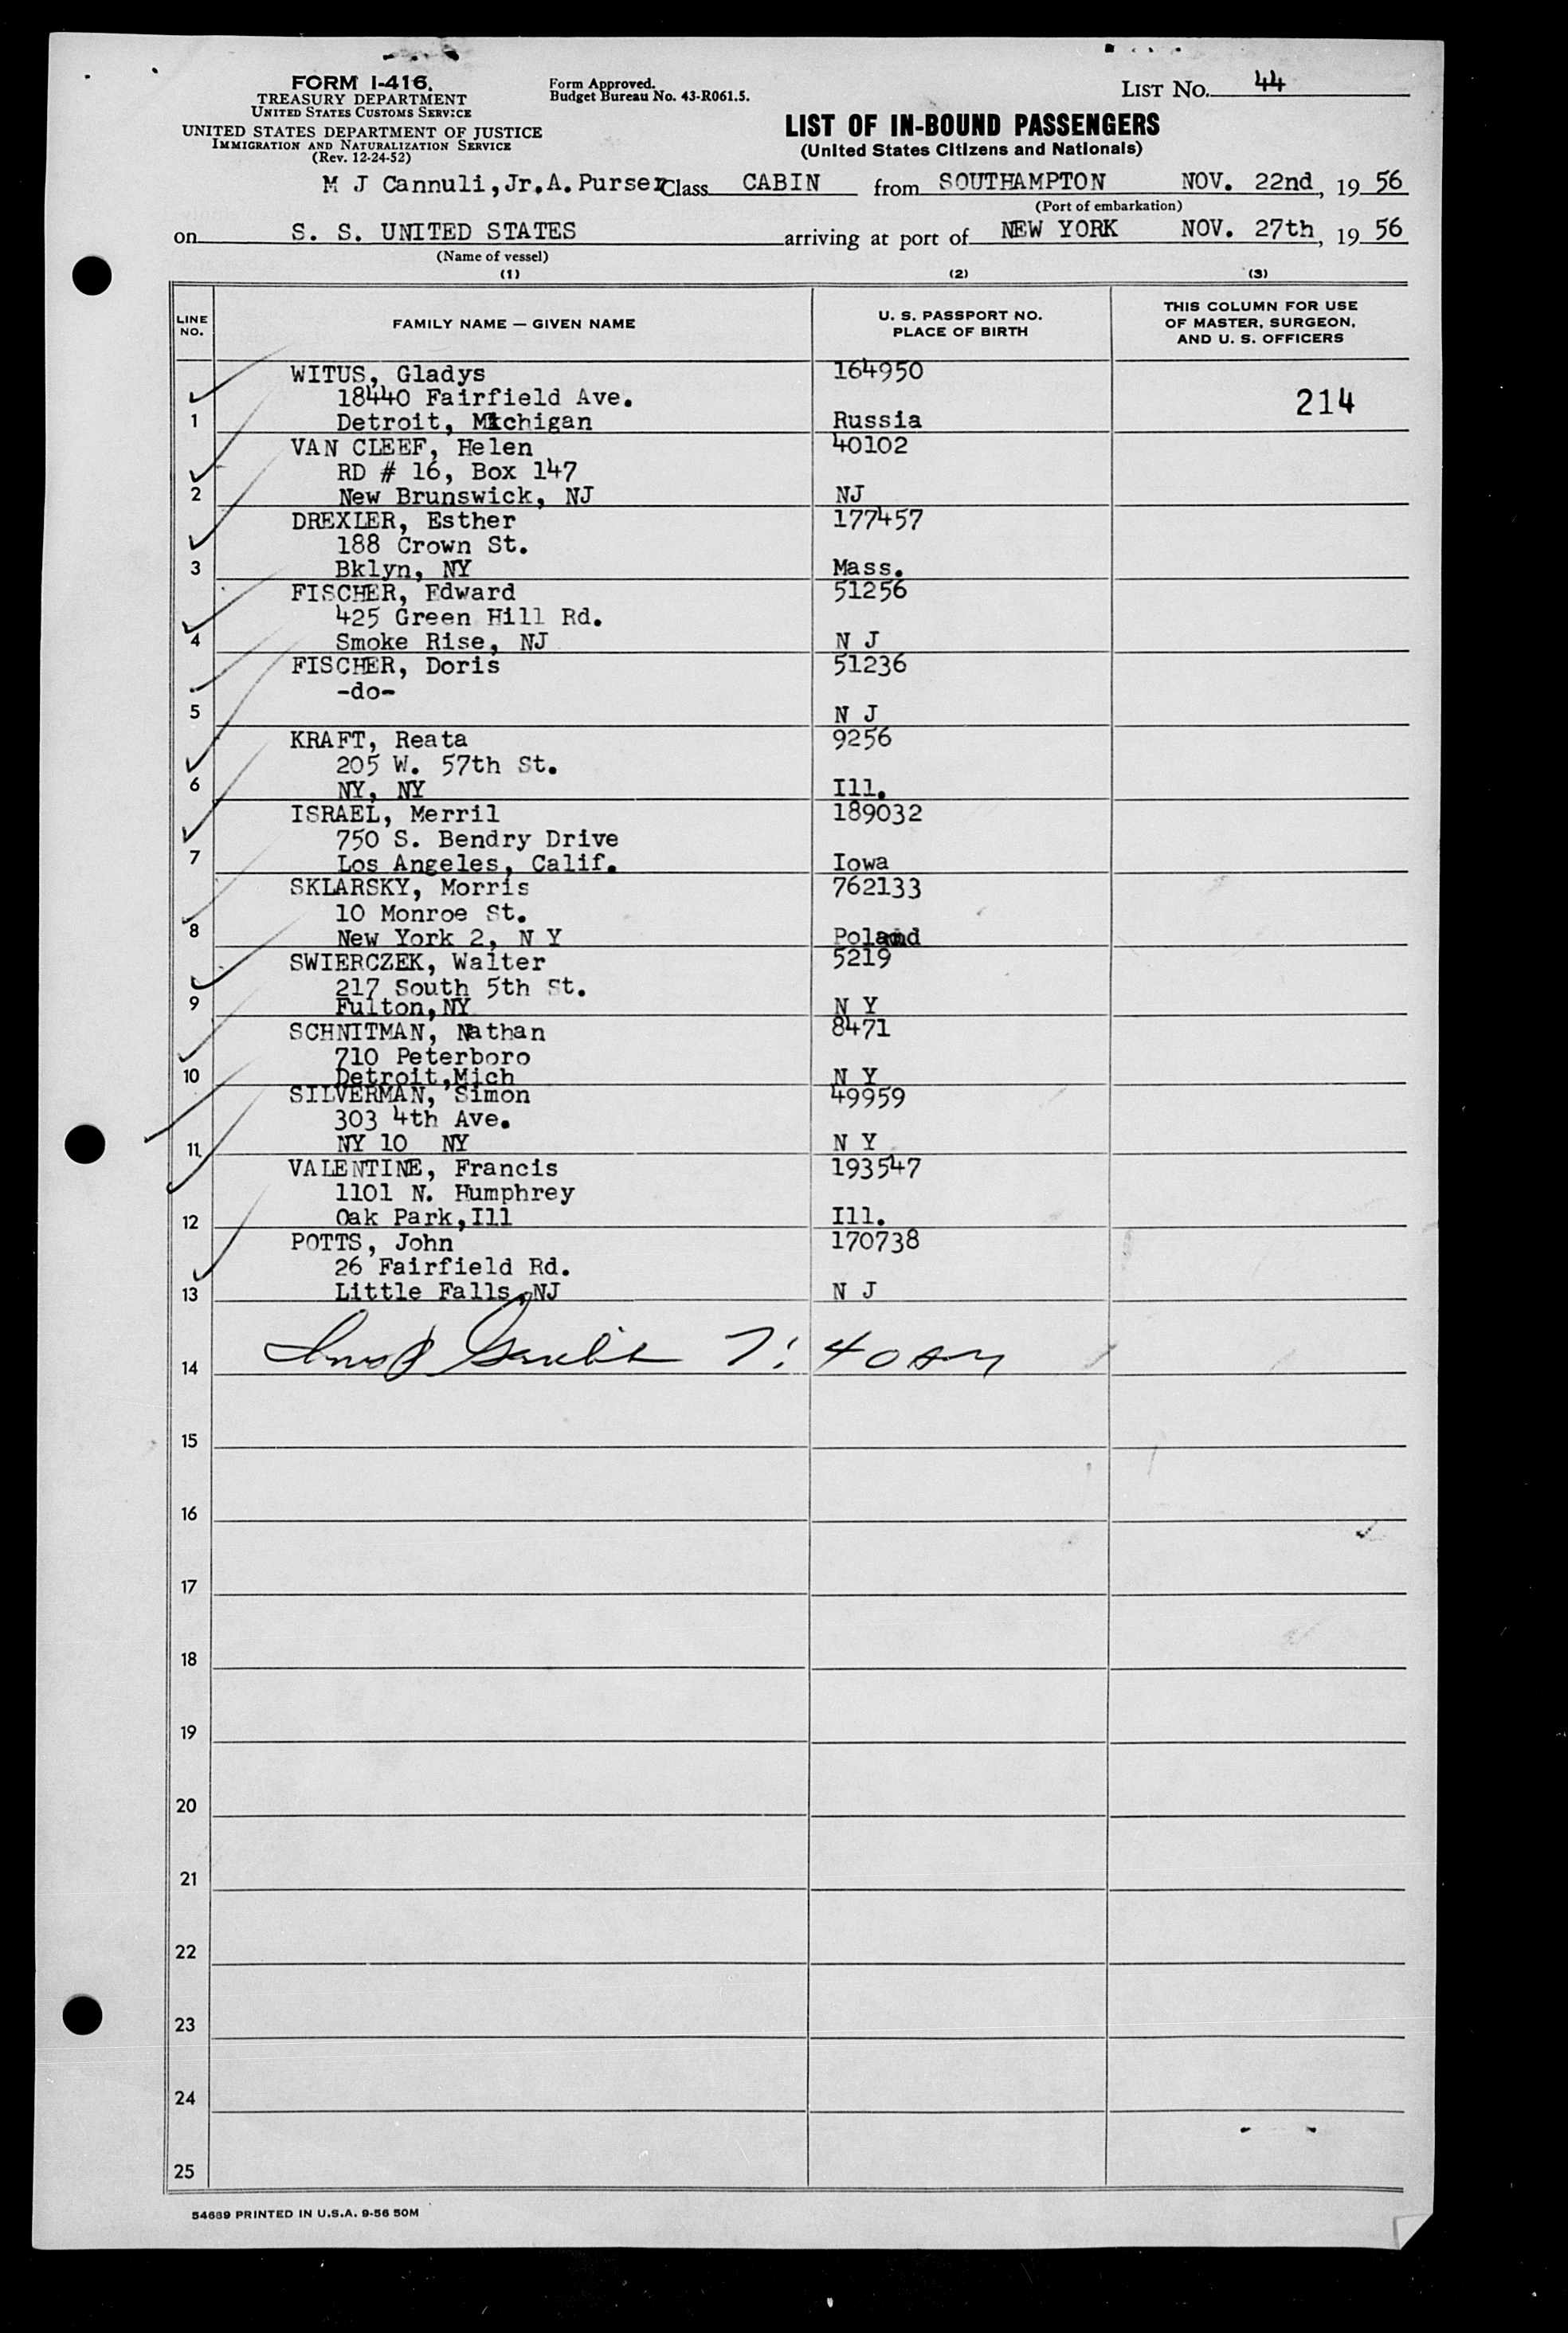 FORM I-416.
TREASURY DEPARTMENT
UNITED STATES CUSTOMS SERVICE
UNITED STATES DEPARTMENT OF JUSTICE
IMMIGRATION AND NATURALIZATION SERVICE
(Rev. 12-24-52)
Form Approved.
Budget Bureau No. 43-R061.5.
LIST NO. 44
LIST OF IN-BOUND PASSENGERS
(United States Citizens and Nationals)
M J Cannuli, Jr. A. Purser Class CABIN from SOUTHAMPTON NOV. 22nd, 19 56
(Port of embarkation)
on S. S. UNITED STATES arriving at port of NEW YORK NOV. 27th, 19 56
(Name of vessel)
(1) (2) (3)
LINE NO. FAMILY NAME — GIVEN NAME U. S. PASSPORT NO. PLACE OF BIRTH THIS COLUMN FOR USE OF MASTER, SURGEON, AND U. S. OFFICERS
WITUS, Gladys 164950
18440 Fairfield Ave. 214
1 Detroit, Michigan Russia
VAN CLEEF, Helen 40102
RD # 16, Box 147
2 New Brunswick, NJ NJ
DREXLER, Esther 177457
188 Crown St.
3 Bklyn, NY Mass.
FISCHER, Edward 51256
425 Green Hill Rd.
4 Smoke Rise, NJ N J
FISCHER, Doris 51236
-do-
5 N J
KRAFT, Reata 9256
205 W. 57th St.
6 NY, NY Ill.
ISRAEL, Merril 189032
750 S. Bendry Drive
7 Los Angeles, Calif. Iowa
SKLARSKY, Morris 762133
10 Monroe St.
8 New York 2, N Y Poland
SWIERCZEK, Walter 5219
217 South 5th St.
9 Fulton, NY N Y
SCHNITMAN, Nathan 8471
710 Peterboro
10 Detroit, Mich N Y
SILVERMAN, Simon 49959
303 4th Ave.
11 NY 10 NY N Y
VALENTINE, Francis 193547
1101 N. Humphrey
12 Oak Park, Ill Ill.
POTTS, John 170738
26 Fairfield Rd.
13 Little Falls, NJ N J
14 7:40 AM
15
16
17
18
19
20
21
22
23
24
25
54689 PRINTED IN U.S.A. 9-56 50M